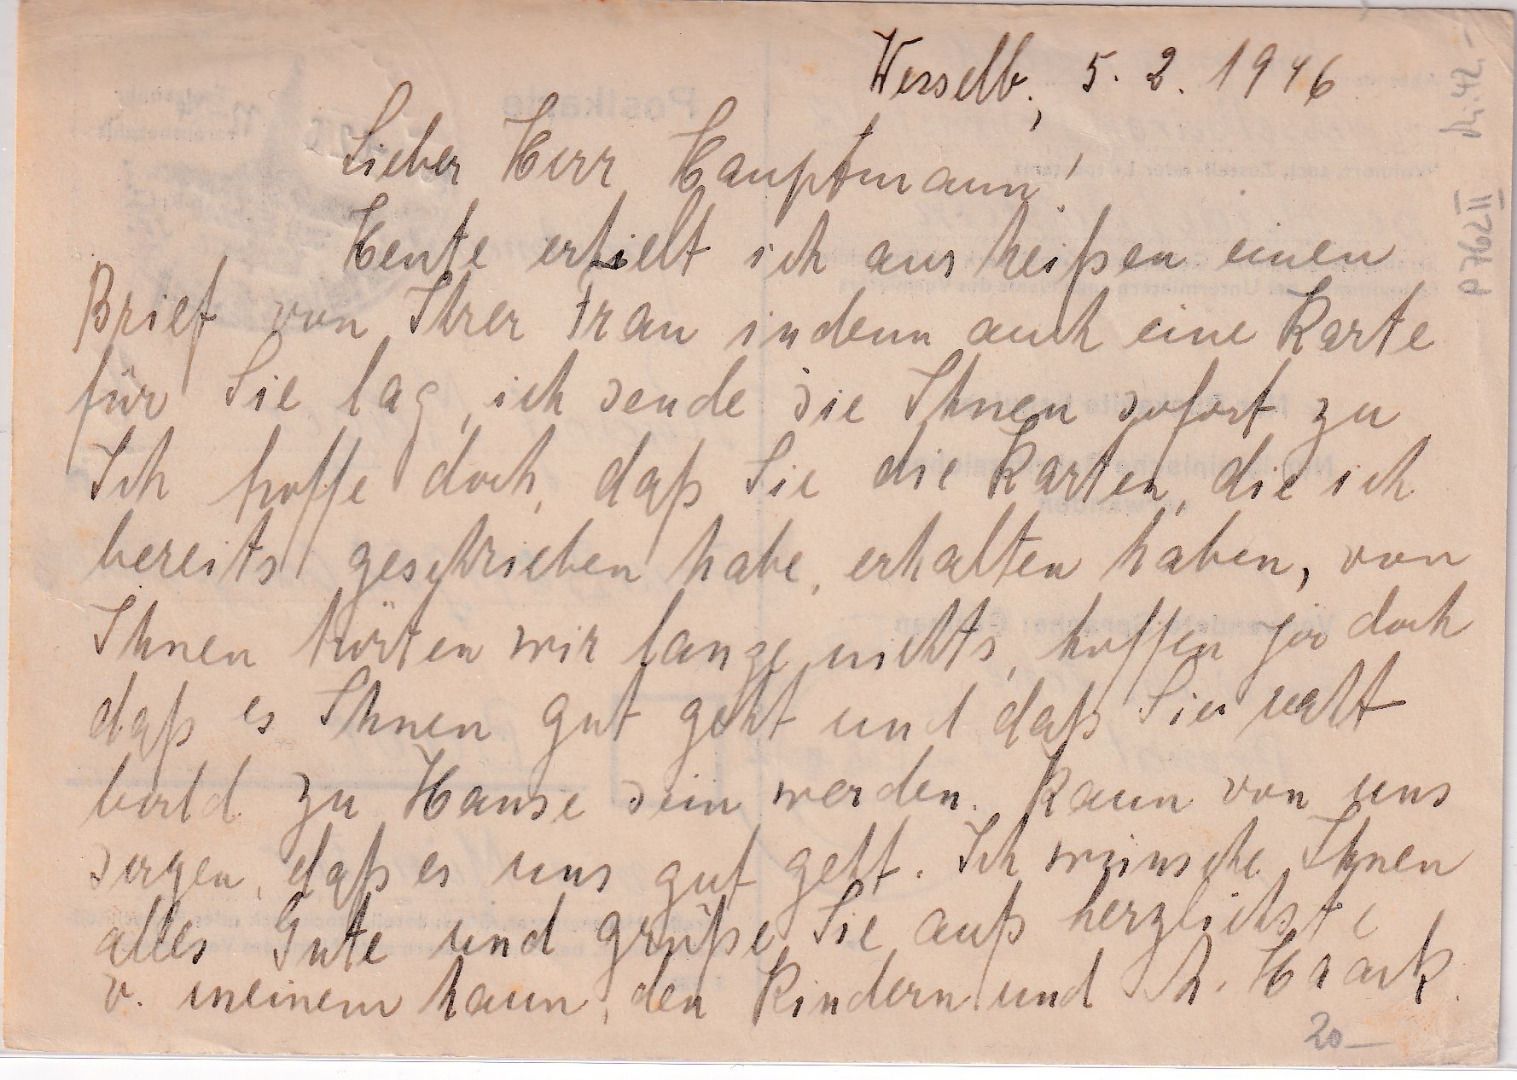 Wesselb., 5. 2. 1946
Lieber Herr Hauptmann!
Heute erhielt ich aus heißen einen
Brief von Ihrer Frau indenn auch eine Karte
für Sie lag, ich sende sie Ihnen sofort zu
Ich hoffe doch, daß Sie die Karten, die ich
bereits geschrieben habe, erhalten haben, von
Ihnen hörten wir lange nichts, hoffen doch
daß es Ihnen gut geht und daß Sie
bald zu Hause sein werden. Kann von uns
sagen, daß es uns gut geht. Ich wünsche Ihnen
alles Gute und grüße Sie aufs herzlichste
v. meinem Mann, den Kindern und Haack.
20—
p 762 II
Postkarte